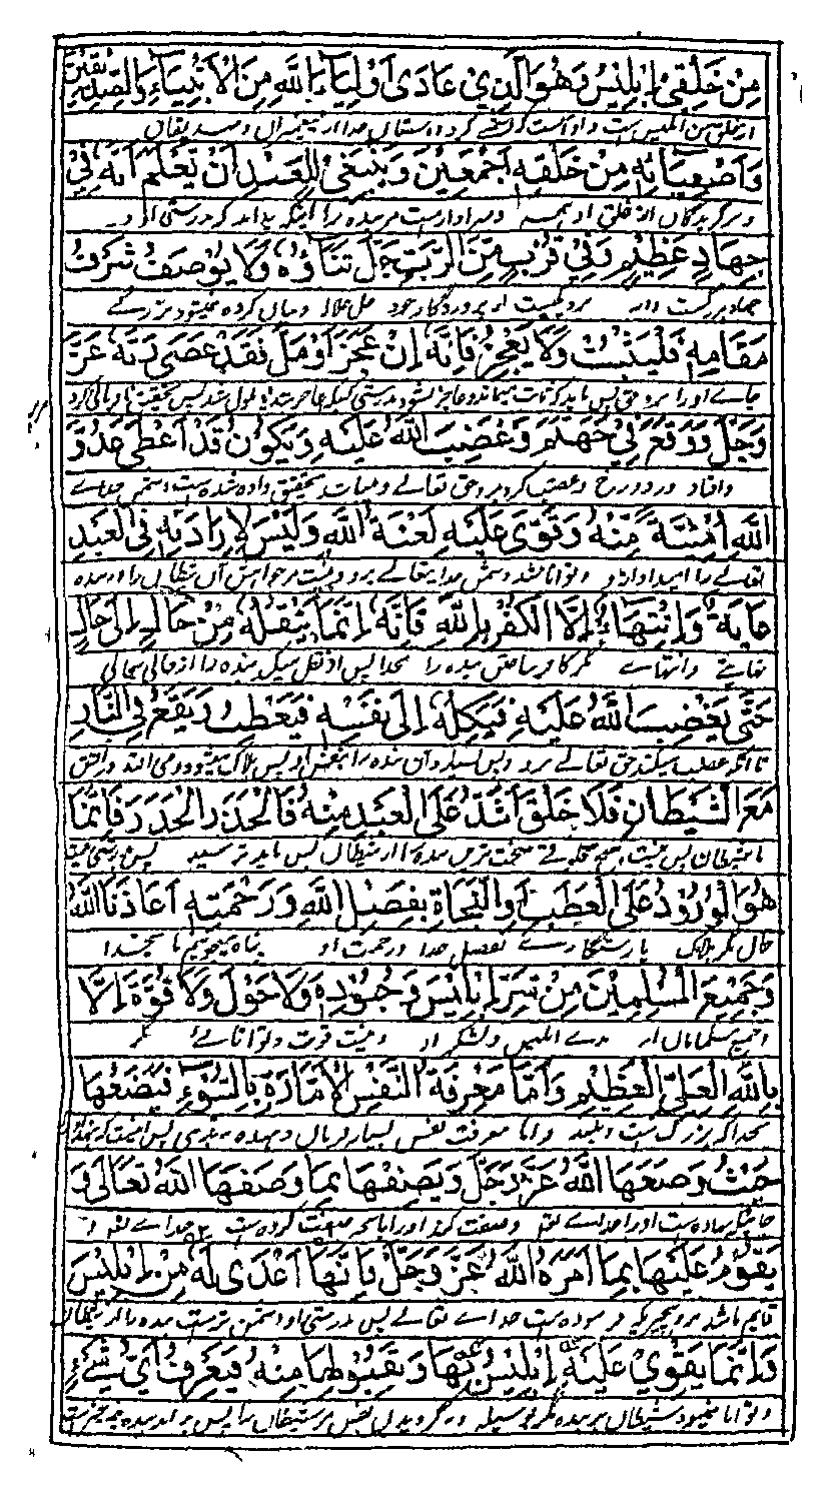 مِنْ خَلْقِىْ اِبْلِيْسُ وَهُوَ الَّذِيْ عَادَى اَوْلِيَآءَ اللّٰهِ مِنَ الْاَنْبِيَآءِ وَالصِّدِّيْقِيْنَ
از خلق من ابلیس است و او آنست که دشمنے کرد دوستان خدا از پیغمبران و صدیقان
وَاَصْفِيَآئِهٖ مِنْ خَلْقِهٖ اَجْمَعِيْنَ وَيَنْبَغِىْ لِلْعَبْدِ اَنْ يَّعْلَمَ اَنَّهٗ فِيْ
و برگزیدگان از خلق او همه و سزاوارست مر بنده را اینکه بداند که بدرستی او در
جِهَادٍ عَظِيْمٍ وَفِيْ قُرْبٍ مِّنَ الرَّبِّ جَلَّ ثَنَآؤُهٗ وَلَا يُوْصَفُ شَرَفُ
جهاد بزرگست و در نزدیکیست از پروردگار خود جل جلاله و بیان کرده نمیشود بزرگے
مَقَامِهٖ فَلْيَثْبُتْ وَلَا يَعْجِزْ فَاِنَّهٗ اِنْ عَجَزَ اَوْ مَلَّ فَقَدْ عَصٰى رَبَّهٗ عَزَّ
جاے او را پس باید که ثابت بماند و عاجز نشود بدرستی که عاجز شد یا ملول شد پس بتحقیق
وَجَلَّ وَوَقَعَ فِيْ جَهَنَّمَ وَغَضِبَ اللّٰهُ عَلَيْهِ وَيَكُوْنُ قَدْ اَعْطٰى عَدُوَّ
و افتاد در دوزخ و غضب کرد بر و حق تعالے و میباشد بتحقیق داده شده است دشمن خداے
اللّٰهِ اُمْنِيَّةً مِّنْهُ وَتَقَوّٰى عَلَيْهِ لَعْنَةُ اللّٰهِ وَلَيْسَ لِاِرَادَتِهٖ فِى الْعَبْدِ
تعالے را امید او از و و توانا شد دشمن خدا تعالے بر و و نیست مر خواهش آن شیطان را در بنده
غَايَةٌ وَانْتِهَآءٌ اِلَّا الْكُفْرُ بِاللّٰهِ فَاِنَّهٗ اِنَّمَا يَنْقُلُهٗ مِنْ حَالٍ اِلٰى حَالٍ
نهایتے و انتهاے مگر کافر ساختن بنده را بخدا پس او نقل میکند بنده را از حالی بحالی
حَتّٰى يَغْضِبَ اللّٰهُ عَلَيْهِ فَيَكِلَهٗ اِلٰى نَفْسِهٖ فَيَعْطِبُ وَيَقَعُ فِى النَّارِ
تا آنکه غضب میکند حق تعالے بر و و پس بسپارد آن بنده را بنفس او پس هلاک میشود و می افتد در آتش
مَعَ الشَّيْطَانِ فَلَا خَلْقَ اَشَدُّ عَلَى الْعَبْدِ مِنْهُ فَالْحَذَرَ الْحَذَرَ فَاِنَّمَا
با شیطان پس نیست هیچ خلقے سخت تر بر بنده از شیطان پس باید ترسید پس بدرستی
هُوَ الْوُرُوْدُ عَلَى الْعَطَبِ اَوِ النَّجَاةِ بِفَضْلِ اللّٰهِ وَرَحْمَتِهٖ اَعَاذَنَا اللّٰهُ
حال مگر بهلاک یا رستگارے بفضل خدا و رحمت او پناه میجوئیم ما بخدا
وَجَمِيْعَ الْمُسْلِمِيْنَ مِنْ شَرِّ اِبْلِيْسَ وَجُنُوْدِهٖ وَلَا حَوْلَ وَلَا قُوَّةَ اِلَّا
و جمیع مسلمانان از بدے ابلیس و لشکر او و نیست قوت و توانائے مگر
بِاللّٰهِ الْعَلِيِّ الْعَظِيْمِ وَاَمَّا مَعْرِفَةُ النَّفْسِ الْاَمَّارَةِ بِالسُّوْءِ فَيَضَعُهَا
بخدا که بزرگ است و بلند و اما معرفت نفس بسیار فرمان دهنده ببدی پس
حَيْثُ وَضَعَهَا اللّٰهُ عَزَّ وَجَلَّ وَيَصِفُهَا بِمَا وَصَفَهَا اللّٰهُ تَعَالٰى وَ
جائیکه نهاده است او را خداے تعالے و صفت کرد او را بآنچه صفت کرده است خداے تعالے و
يَقُوْمُ عَلَيْهَا بِمَا اَمَرَهُ اللّٰهُ عَزَّ وَجَلَّ فَاِنَّهَا اَعْدٰى لَهٗ مِنْ اِبْلِيْسَ
قایم باشد بر و بچیزیکه فرموده است خداے تعالے پس بدرستی او دشمن ترست بنده را از شیطان
وَاِنَّمَا يَقْوِيْ عَلَيْهِ اِبْلِيْسُ بِهَا وَبِقَبُوْلِهَا مِنْهُ فَيَعْرِفُ اَيَّ شَيْءٍ
و توانا میشود شیطان بر بنده مگر بوسیله و پس بداند بنده چه چیز است